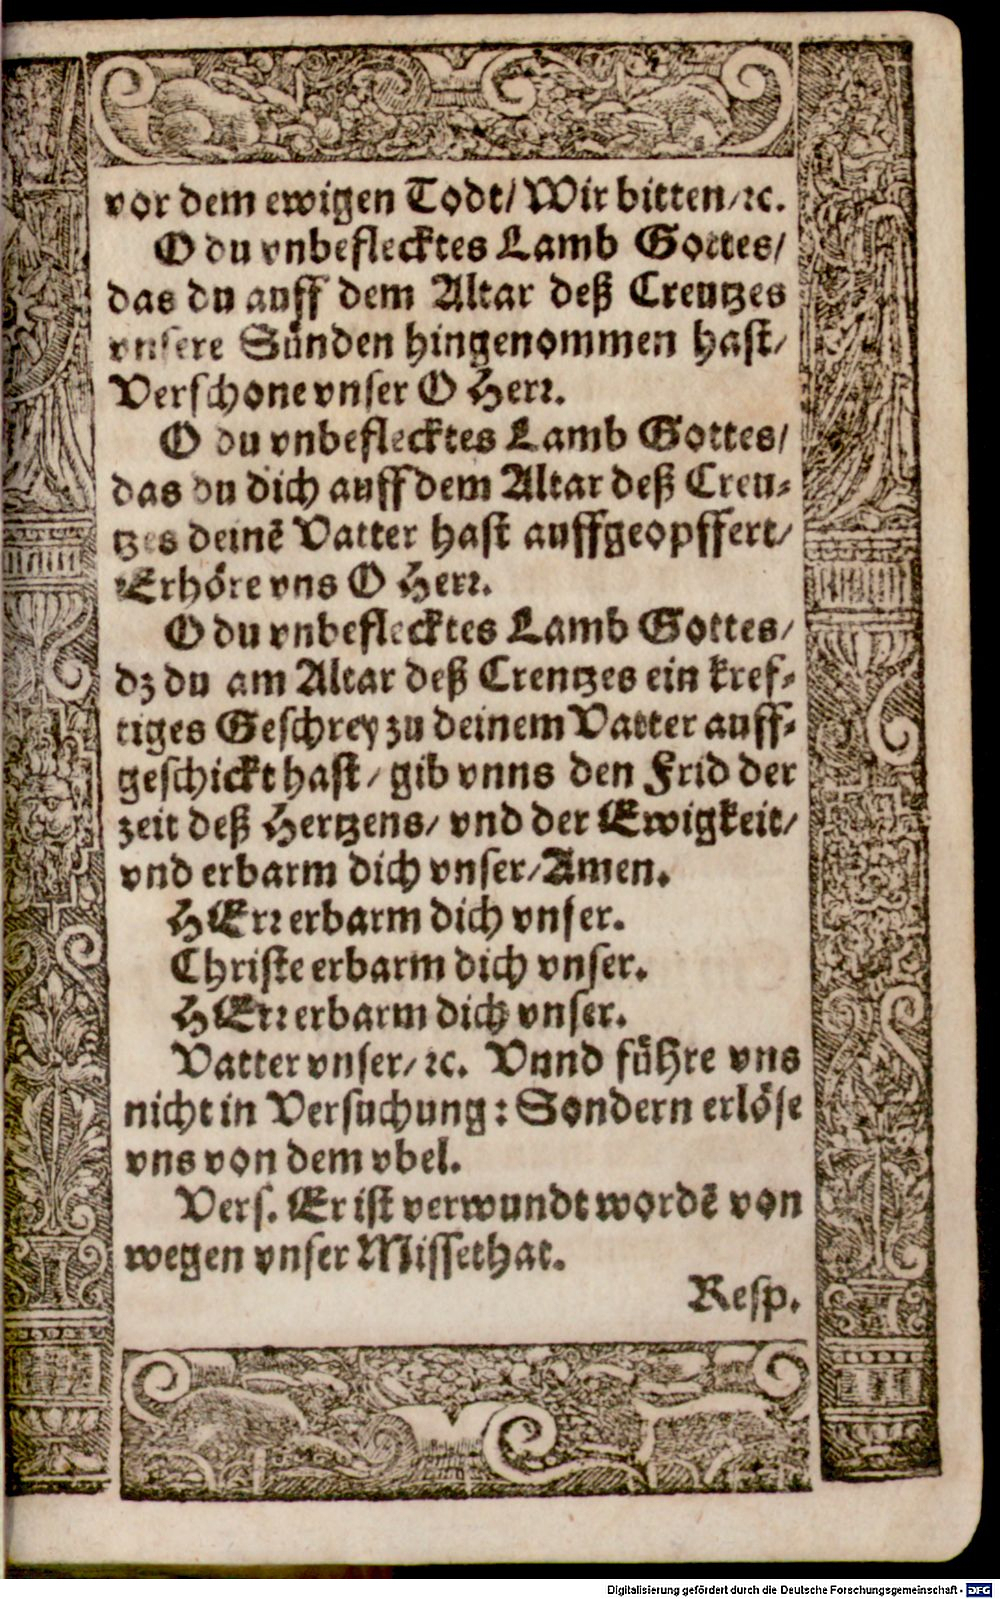 vor dem ewigen Todt/ Wir bitten/ꝛc.
O du vnbeflecktes Lamb Gottes/
das du auff dem Altar deß Creutzes
vnsere Sünden hingenommen hast/
Verschone vnser O Herꝛ.
O du vnbeflecktes Lamb Gottes/
das du dich auff dem Altar deß Creu-
tzes deinẽ Vatter hast auffgeopffert/
Erhöre vns O Herꝛ.
O du vnbeflecktes Lamb Gottes/
dz du am Altar deß Creutzes ein kref-
tiges Geschrey zu deinem Vatter auff-
geschickt hast/ gib vnns den Frid der
zeit deß Hertzens/ vnd der Ewigkeit/
vnd erbarm dich vnser/ Amen.
HErꝛ erbarm dich vnser.
Christe erbarm dich vnser.
HErꝛ erbarm dich vnser.
Vatter vnser/ ꝛc. Vnnd führe vns
nicht in Versuchung: Sondern erlöse
vns von dem vbel.
Vers. Er ist verwundt wordẽ von
wegen vnser Missethat.
Resp.
Digitalisierung gefördert durch die Deutsche Forschungsgemeinschaft - DFG